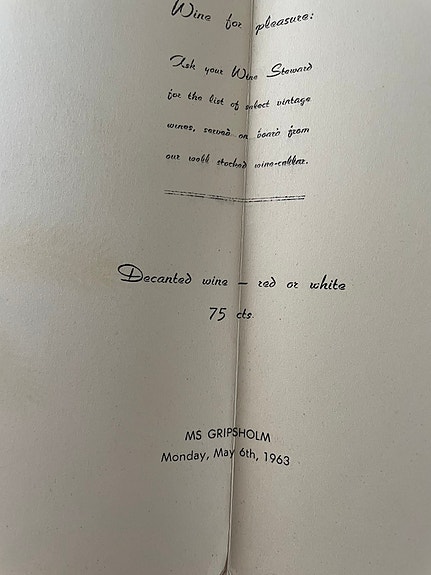 Wine for pleasure:
Ask your Wine Steward
for the list of select vintage
wines, served on board from
our well stocked wine-cellar.
Decanted wine — red or white
75 cts.
MS GRIPSHOLM
Monday, May 6th, 1963